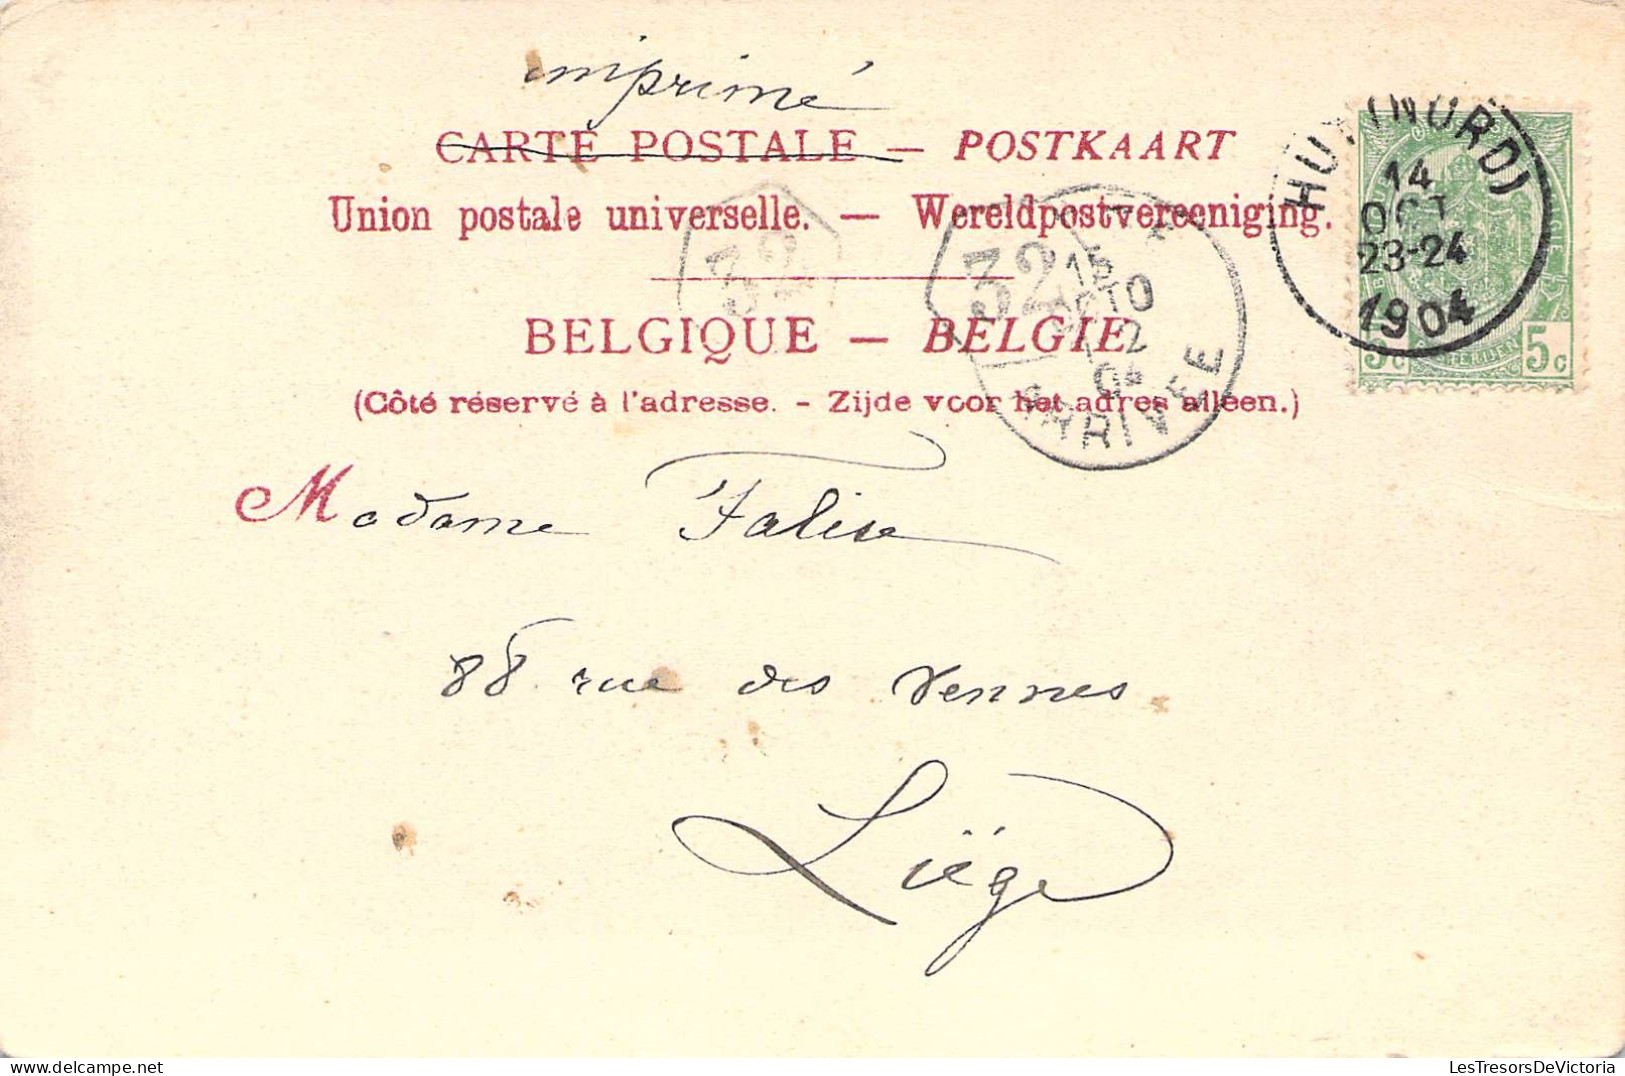 imprimé
CARTE POSTALE — POSTKAART
Union postale universelle. — Wereldpostvereeniging.
BELGIQUE — BELGIE
(Côté réservé à l'adresse. - Zijde voor het adres alleen.)
HUY (NORD)
14
OCT
23-24
1904
5c 5c
32
32
15
OCTO
12
04
ARRIVEE
Madame Falise
88 rue des Vennes
Liége
LesTresorsDeVictoria